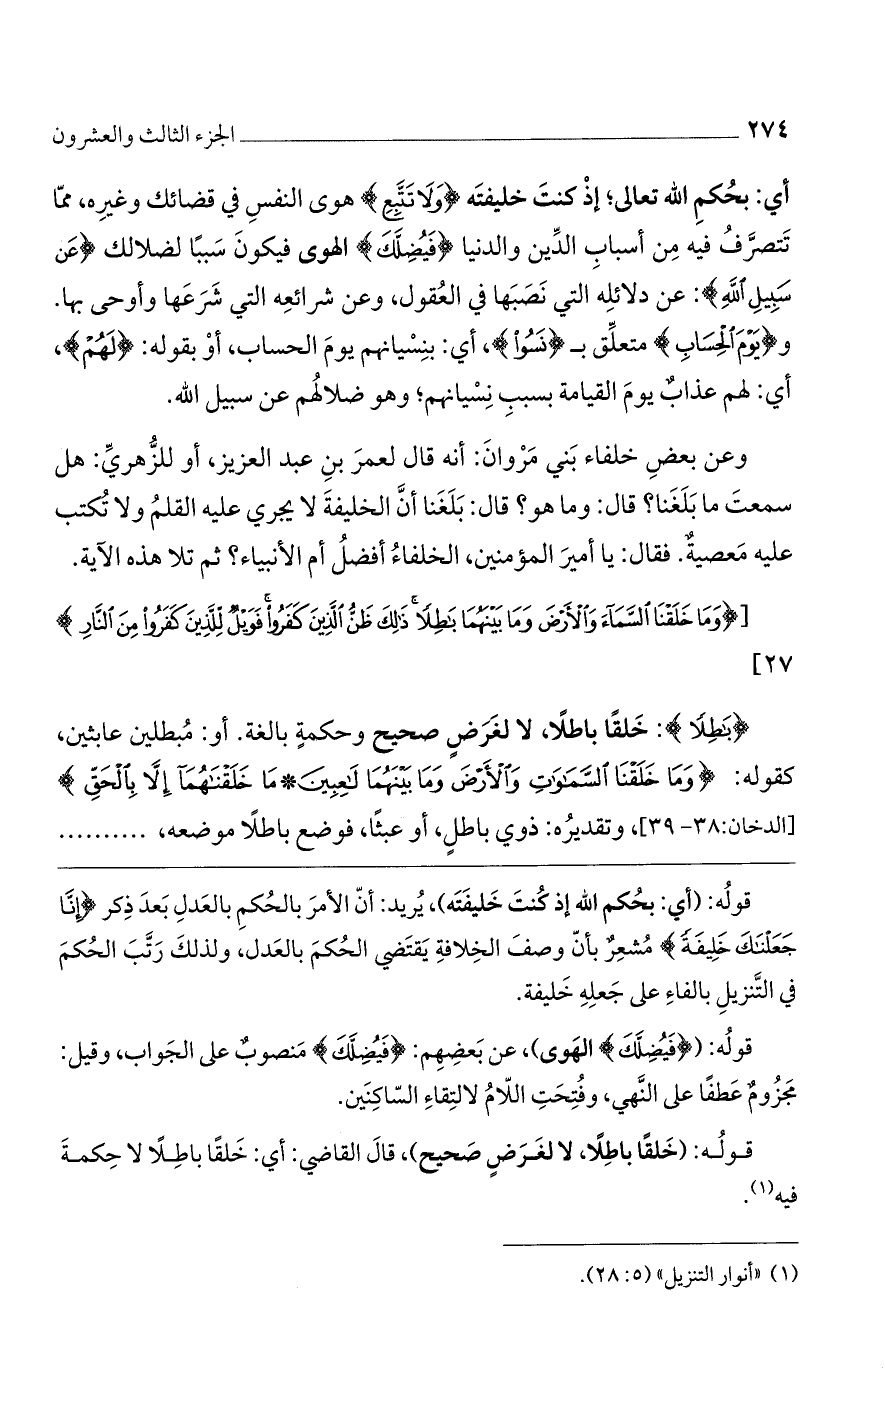 ٢٧٤ ــــــــــــــــــــــــــــــــــــــ الجزء الثالث والعشرون
أي: بحُكمِ الله تعالى؛ إذْ كنتَ خليفتَه ﴿وَلَا تَتَّبِعِ﴾ هوى النفسِ في قضائك وغيرِه، ممّا
تَتصرَّفُ فيه مِن أسبابِ الدِّين والدنيا ﴿فَيُضِلَّكَ﴾ الهوى فيكونَ سَببًا لضلالك ﴿عَن
سَبِيلِ ٱللَّهِ﴾: عن دلائلِه التي نَصَبَها في العُقول، وعن شرائعِه التي شَرَعَها وأوحى بها.
و﴿يَوْمَ ٱلْحِسَابِ﴾ متعلِّق بـ ﴿نَسُوا۟﴾، أي: بنِسْيانهم يومَ الحساب، أوْ بقوله: ﴿لَهُمْ﴾،
أي: لهم عذابٌ يومَ القيامة بسببِ نِسْيانهم؛ وهو ضلالُهم عن سبيل الله.
وعن بعضِ خلفاء بَني مَرْوانَ: أنه قال لعمرَ بنِ عبد العزيز، أو للزُّهريِّ: هل
سمعتَ ما بَلَغَنا؟ قال: وما هو؟ قال: بَلَغَنا أنَّ الخليفةَ لا يجري عليه القلمُ ولا تُكتب
عليه مَعصيةٌ. فقال: يا أميرَ المؤمنين، الخلفاءُ أفضلُ أم الأنبياء؟ ثم تلا هذه الآية.
[﴿وَمَا خَلَقْنَا ٱلسَّمَآءَ وَٱلْأَرْضَ وَمَا بَيْنَهُمَا بَٰطِلًا ۚ ذَٰلِكَ ظَنُّ ٱلَّذِينَ كَفَرُوا۟ ۚ فَوَيْلٌ لِّلَّذِينَ كَفَرُوا۟ مِنَ ٱلنَّارِ﴾
٢٧]
﴿بَٰطِلًا﴾: خَلقًا باطلًا، لا لغَرَضٍ صحيح وحكمةٍ بالغة. أو: مُبطلين عابثين،
كقوله: ﴿وَمَا خَلَقْنَا ٱلسَّمَٰوَٰتِ وَٱلْأَرْضَ وَمَا بَيْنَهُمَا لَٰعِبِينَ * مَا خَلَقْنَٰهُمَآ إِلَّا بِٱلْحَقِّ﴾
[الدخان: ٣٨- ٣٩]، وتقديرُه: ذوي باطلٍ، أو عبثًا، فوضع باطلًا موضعه، ..........
قولُه: (أي: بحُكم الله إذ كُنتَ خَليفَتَه)، يُريد: أنّ الأمرَ بالحُكمِ بالعَدلِ بَعدَ ذِكر ﴿إِنَّا
جَعَلْنَٰكَ خَلِيفَةً﴾ مُشعِرٌ بأنّ وصفَ الخِلافةِ يَقتَضي الحُكمَ بالعَدل، ولذلكَ رَتَّبَ الحُكمَ
في التَّنزيلِ بالفاءِ على جَعلِهِ خَليفة.
قولُه: (﴿فَيُضِلَّكَ﴾ الهَوى)، عن بَعضِهِم: ﴿فَيُضِلَّكَ﴾ مَنصوبٌ على الجَواب، وقيل:
مَجزُومٌ عَطفًا على النَّهي، وفُتِحَتِ اللّامُ لالتِقاءِ السّاكِنَين.
قـولُـه: (خَلقًا باطِلًا، لا لغَـرَضٍ صَحيح)، قالَ القاضي: أي: خَلقًا باطِـلًا لا حِكمـةَ
فيه(١).
(١) «أنوار التنزيل» (٥: ٢٨).